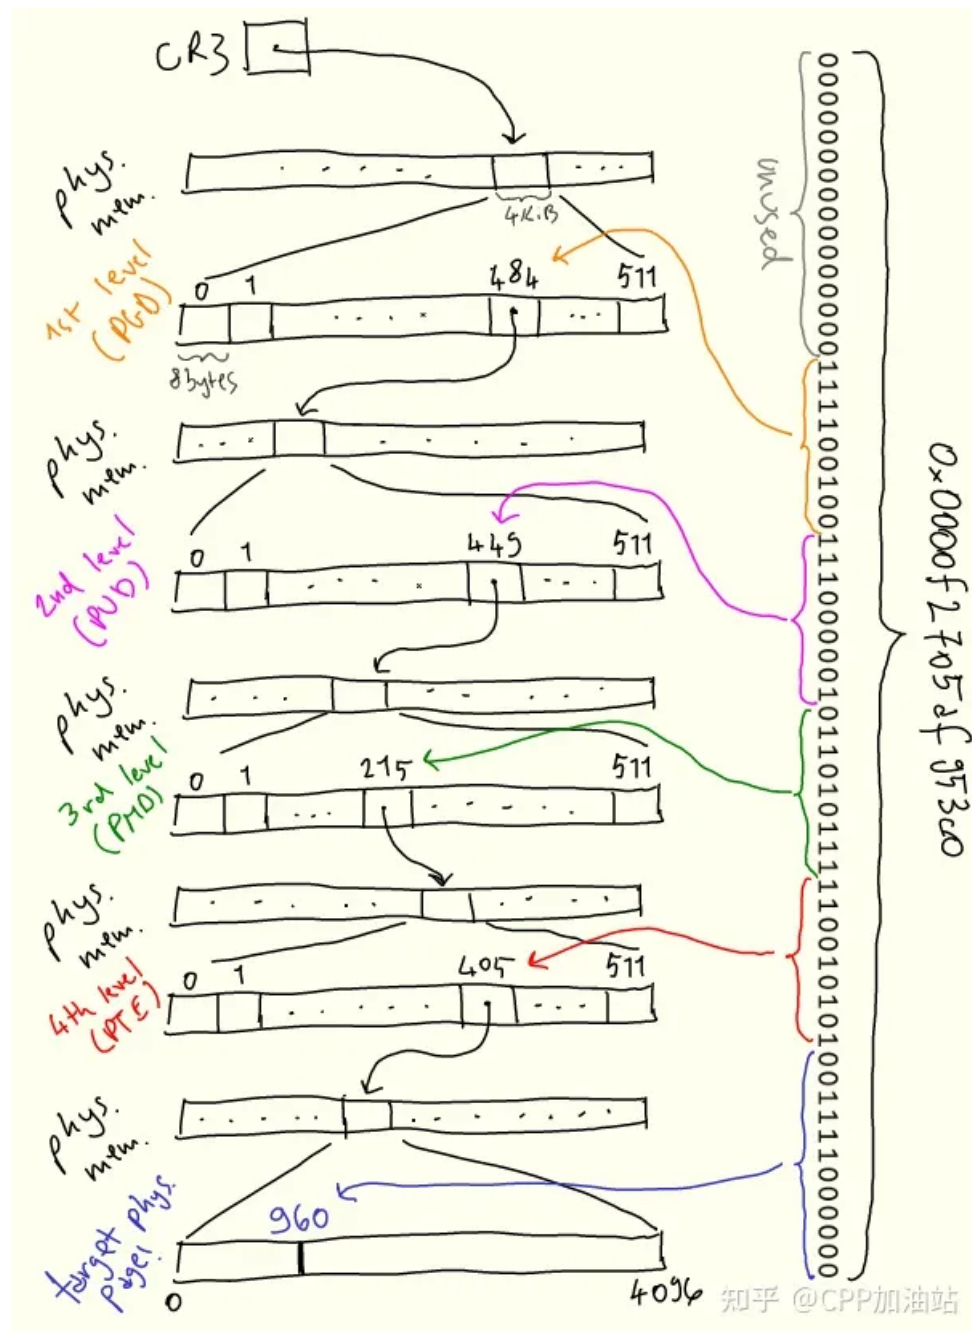 CR3
phys.
mem.
4KiB
1st level
(PGD)
0 1 484 511
8bytes
phys.
mem.
2nd level
(PUD)
0 1 449 511
phys.
mem.
3rd level
(PMD)
0 1 215 511
phys.
mem.
4th level
(PTE)
0 1 405 511
phys.
mem.
target phys.
page!
960
0 4096
unused
0000000000000000111100100111000001011010111110010101001111000000
0x0000f2705af953c0
知乎 @CPP加油站